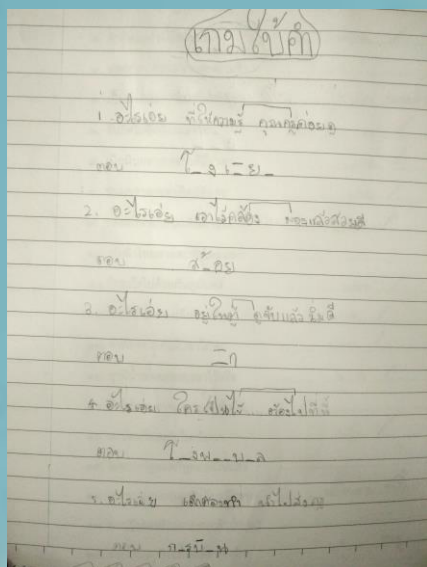 เกมใบ้คำ
1. อะไรเอ่ย ที่ให้ความรู้ คุณครูคอยดุ
ตอบ โ_งเ_ีย_
2. อะไรเอ่ย เอาไว้คล้อง มองแล้วสวยดี
ตอบ ส_้อย
3. อะไรเอ่ย อยู่ในตู้ ดูจับแล้ว
ตอบ
4. อะไรเอ่ย ใครเป็นไข้ ต้องไปที่นี่
ตอบ โ_งพ__บ_ล
5. อะไรเอ่ย
ตอบ ก_ะบ_น